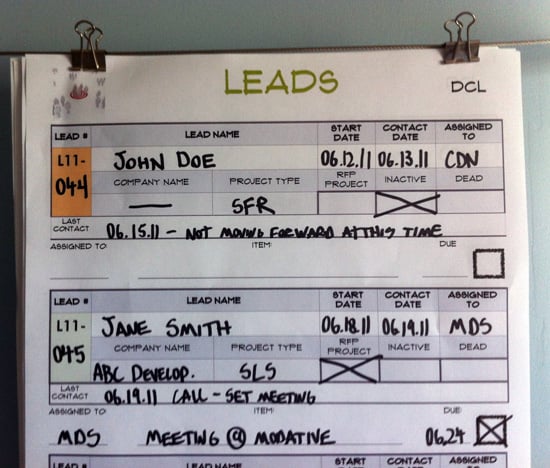 LEADS
DCL
LEAD # LEAD NAME START DATE CONTACT DATE ASSIGNED TO
L11-044 JOHN DOE 06.12.11 06.13.11 CDN
COMPANY NAME PROJECT TYPE RFP PROJECT INACTIVE DEAD
— SFR
LAST CONTACT 06.15.11 - NOT MOVING FORWARD AT THIS TIME
ASSIGNED TO: ITEM: DUE
LEAD # LEAD NAME START DATE CONTACT DATE ASSIGNED TO
L11-045 JANE SMITH 06.18.11 06.19.11 MDS
COMPANY NAME PROJECT TYPE RFP PROJECT INACTIVE DEAD
ABC DEVELOP. SLS
LAST CONTACT 06.19.11 CALL - SET MEETING
ASSIGNED TO: ITEM: DUE:
MDS MEETING @ MODATIVE 06.24
LEAD # LEAD NAME START CONTACT ASSIGNED